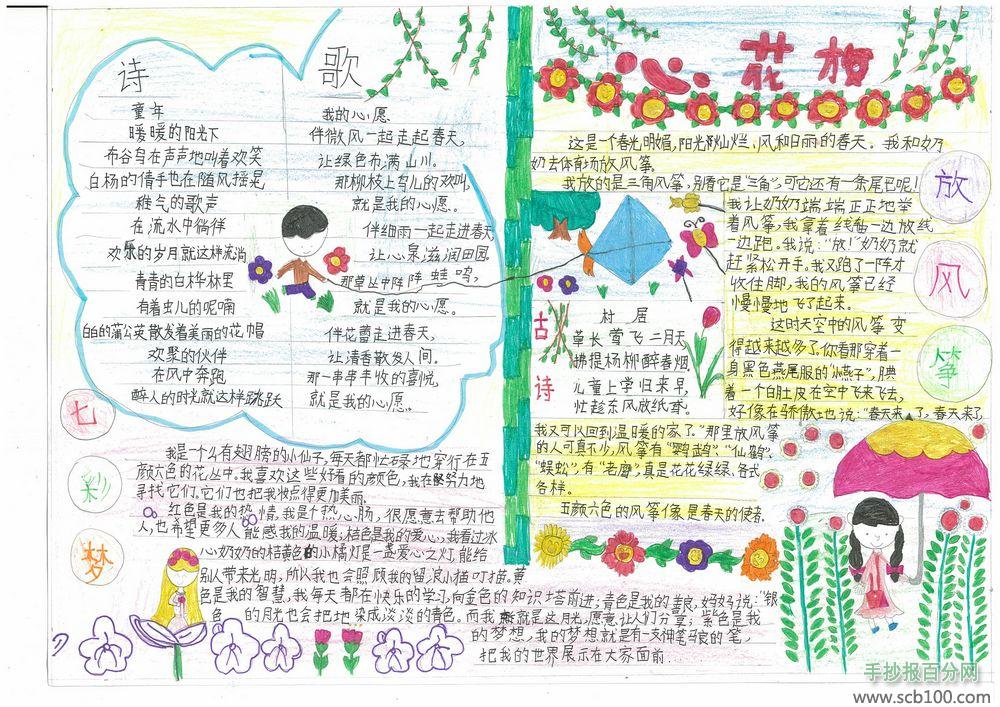 诗 歌
童年
暖暖的阳光下
布谷鸟在声声地叫着欢笑
白杨的倩手也在随风摇晃
稚气的歌声
在流水中徜徉
欢乐的岁月就这样流淌
青青的白桦林里
有着虫儿的呢喃
白白的蒲公英散发着美丽的花帽
欢聚的伙伴
在风中奔跑
醉人的时光就这样跳跃
我的心愿
伴微风一起走起春天,
让绿色布满山川。
那柳枝上鸟儿的欢叫,
就是我的心愿。
伴细雨一起走进春天
让心泉滋润田园
那草丛中阵阵蛙鸣,
就是我的心愿。
伴花蕾走进春天,
让清香散发人间。
那一串串丰收的喜悦,
就是我的心愿。
七
彩
梦
我是个么有翅膀的小仙子,每天都忙碌地穿行在五
颜六色的花丛中。我喜欢这些好看的颜色,我在努力地
寻找它们,它们也把我妆点得更加美丽.
红色是我的热情,我是个热心肠,很愿意去帮助他
人,也希望更多人能感我的温暖,桔色是我的爱心,我看过冰
心奶奶的桔黄色的小橘灯是一盏爱心之灯,能给
别人带来光明,所以我也会照顾我的留浪小猫叮当。黄
色是我的智慧,我每天都在快乐的学习,向金色的知识塔前进;青色是我的善良,妈妈说:"银
色的月光也会把地染成淡淡的青色。而我就是这月光,愿意让人们分享;紫色是我
的梦想,我的梦想就是有一支神笔马良的笔,
把我的世界展示在大家面前.
心花放
这是一个春光明媚,阳光灿烂、风和日丽的春天。我和奶
奶去体育场放风筝。
我放的是三角风筝,别看它是"三角",可它还有一条尾巴呢!
我让奶奶端端正正地举
着风筝,我拿着线轴一边放线
一边跑。我说:"放!"奶奶就
赶紧松开手。我又跑了一阵才
收住脚,我的风筝已经
慢慢地飞了起来。
这时天空中的风筝变
得越来越多了,你看那穿着一
身黑色燕尾服的"小燕子",腆
着一个白肚皮在空中飞来飞去,
好像在骄傲地说:"春天来了,春天来了
我又可以回到温暖的家了。"那里放风筝
的人可真不少,风筝有"鹦鹉""仙鹤"、
"蜈蚣",有"老鹰",真是花花绿绿、各式
各样。
五颜六色的风筝像是春天的使者.
古
诗
村居
草长莺飞二月天
拂提杨柳醉春烟
儿童上学归来早,
忙趁东风放纸鸢。
放
风
筝
手抄报百分网
www.scb100.com